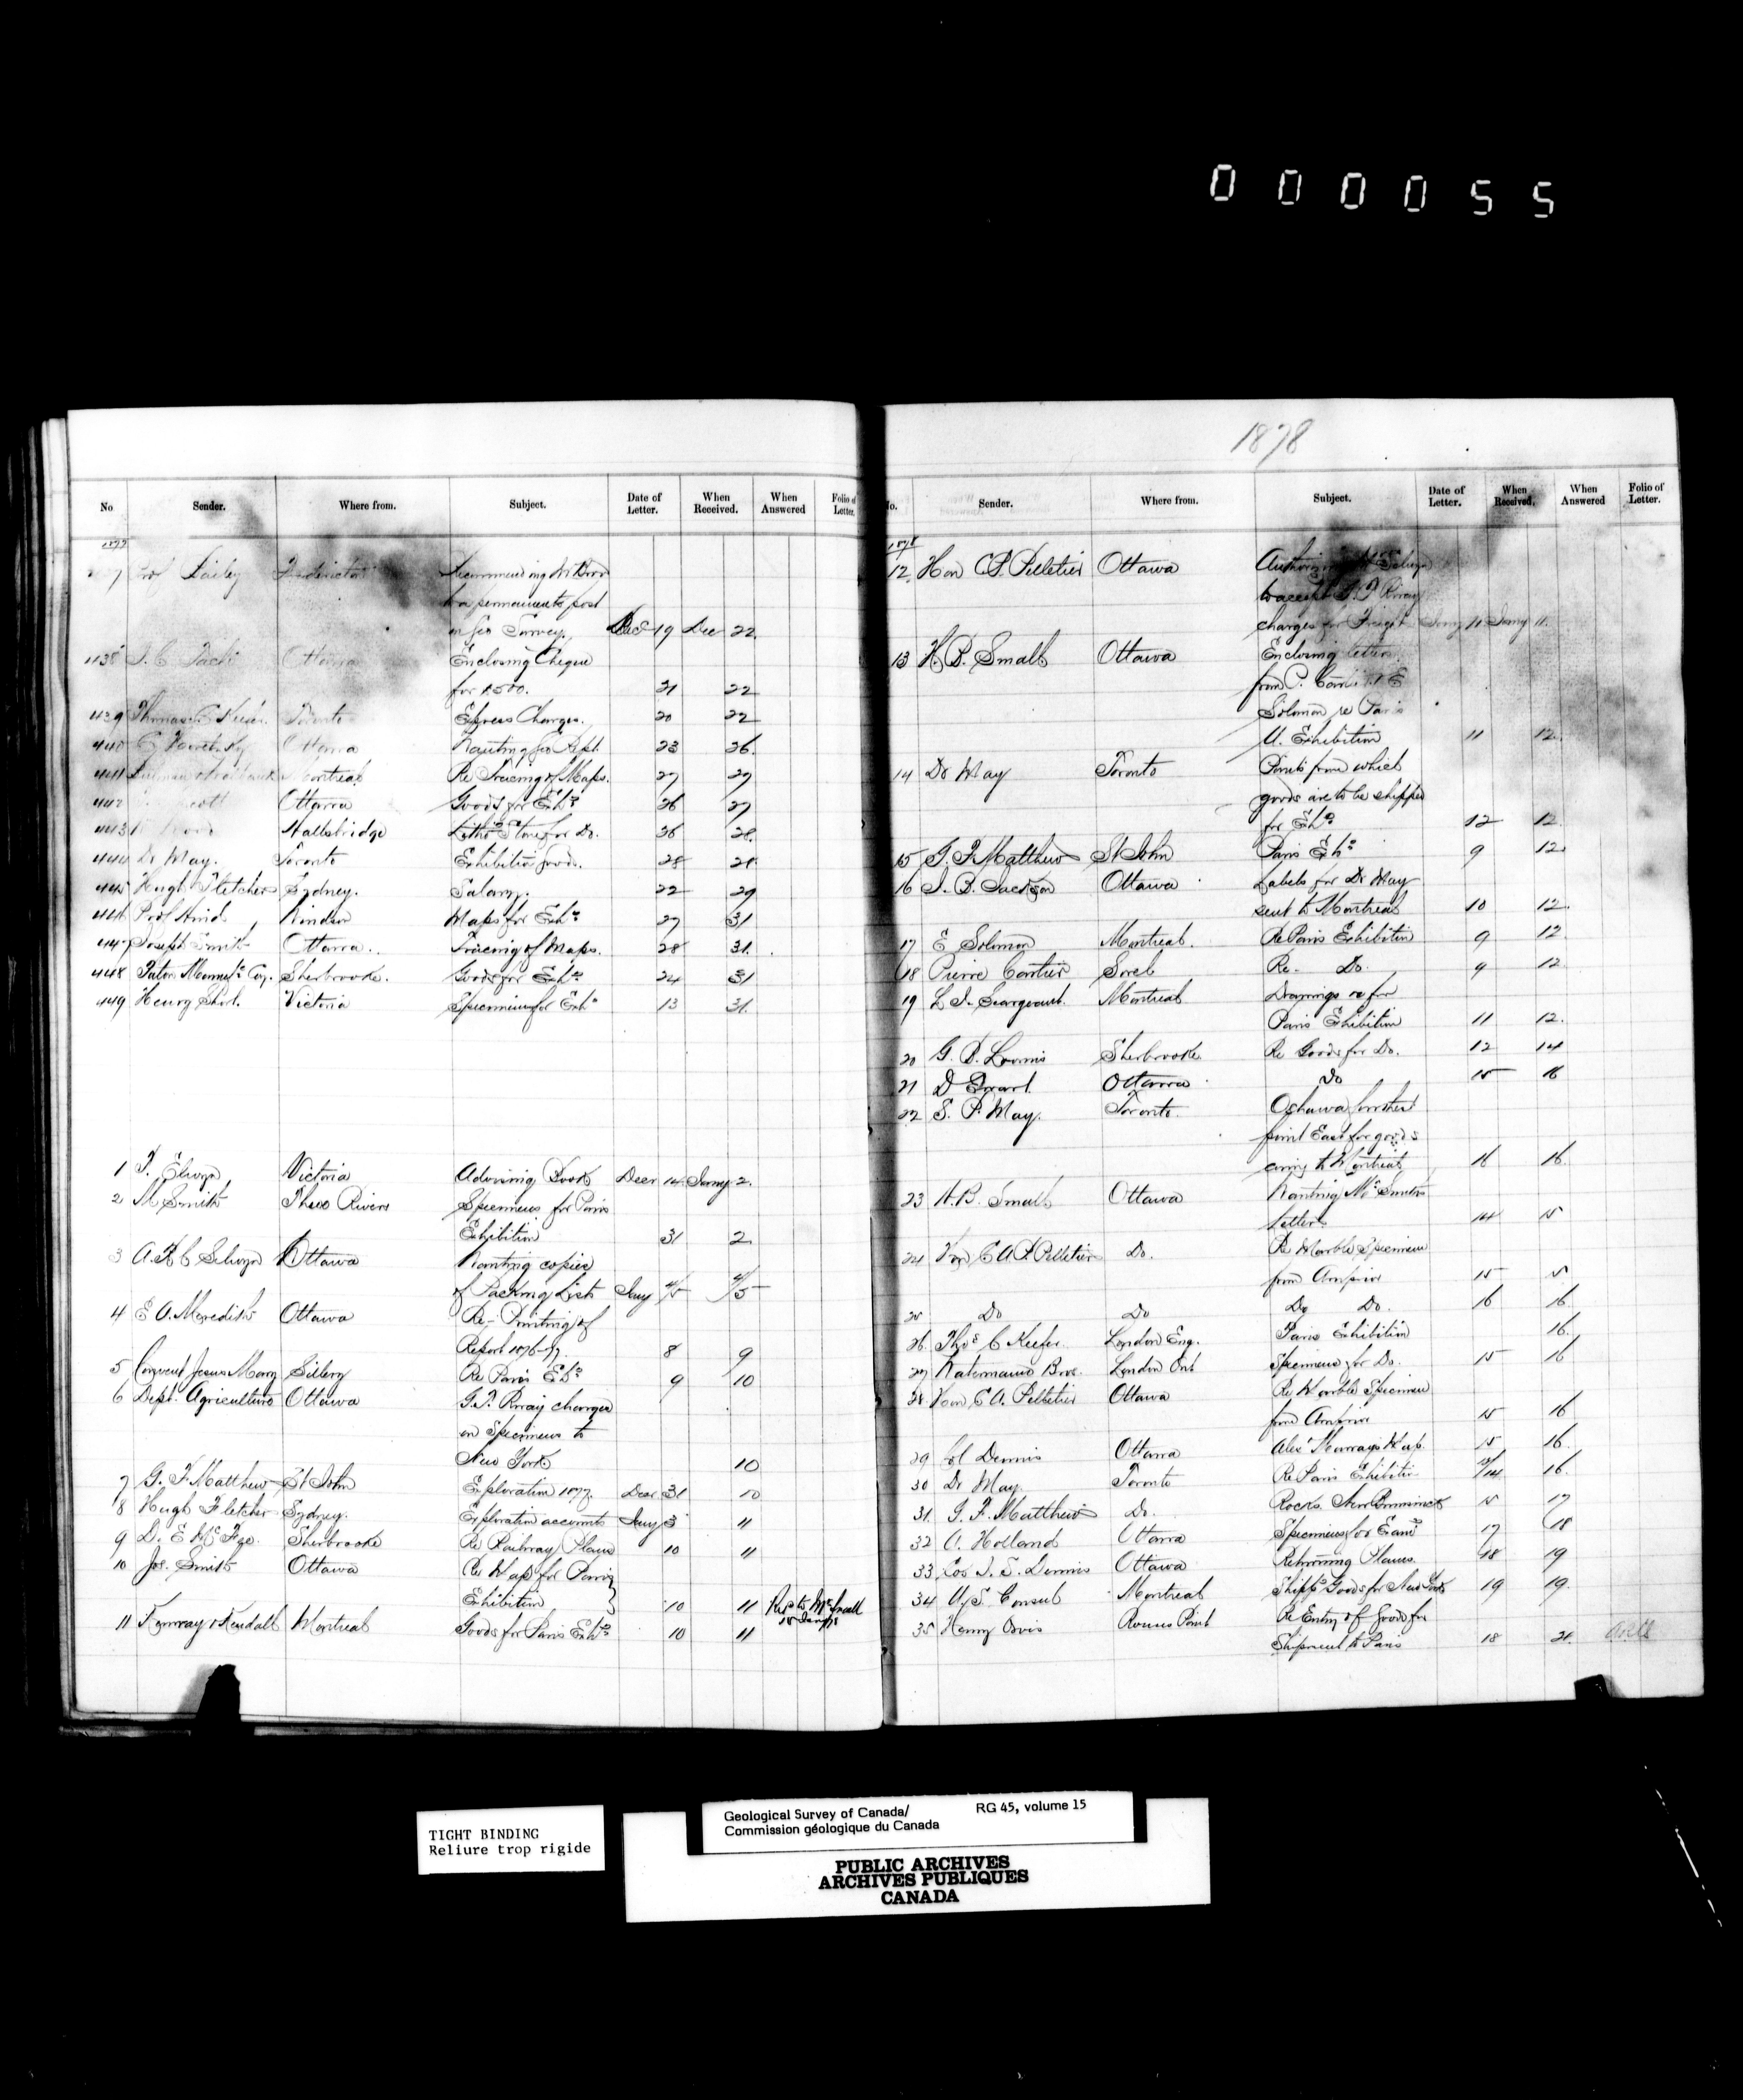 0 0 0 0 5 5
1878
No Sender. Where from. Subject. Date of Letter. When Received. When Answered Folio of Letter.
1877
Prof Bailey Fredericton Recommending Mr
to a permanent post
on Geo Survey. Dec 19 Dec 22.
1138 J. C. Taché Ottawa Enclosing Cheque
for 1500. 21 22
439 Thomas C Keefer Toronto Express Charges. 20 22
440 Ottawa Wanting Geo Rept. 23 26.
441 Montreal Re Tracing of Maps. 27 27
442 Scott Ottawa Goods for Exhn 26 27
443 Wood Wallbridge Litho Stone for Do. 26 28.
444 Dr May. Toronto Exhibition goods. 28 28.
445 Hugh Fletcher Sydney. Salary. 22 29
446 Prof Hind Windsor Maps for Exhn 27 31
447 Joseph Smith Ottawa. Tracing of Maps. 28 31.
448 Paton Coy. Sherbrooke. Goods for Exhn 24 31
449 Henry Victoria Specimens for Exhn 13 31.
1 T. Elwyn Victoria Advising Decr 14 Jany 2.
2 M Smith Three Rivers Specimens for Paris
Exhibition 31 2
3 A. R C Selwyn Ottawa Wanting copies
of Packing Lists Jany 4/5 4/5
4 E A. Meredith Ottawa Re- Printing of
Report 1876-77. 8 9
5 Convent Jesus Mary Sillery Re Paris Exhn 9 10
6 Dept. Agriculture Ottawa G. T. Rway charges
on Specimens to
New York 10
7 G. F. Matthew St John Exploration 1877. Decr 31 10
8 Hugh Fletcher Sydney. Exploration accounts Jany 3 11
9 D. E McFee. Sherbrooke Re Railway Plans 10 11
10 Jos. Smith Ottawa Re Map for Paris
Exhibition 10 11
11 Kendall Montreal Goods for Paris Exhn 10 11
No. Sender. Where from. Subject. Date of Letter. When Received. When Answered Folio of Letter.
1878
12. Hon C. P. Pelletier Ottawa Selwyn
to accept G. T Rway
charges for Freight Jany 11 Jany 11.
13 H. B. Small Ottawa Enclosing letters
from
Solomon re Paris
U. Exhibition 11 12.
14 Dr May Toronto Points from which
goods are to be shipped
for Exhn 12 12.
15 G. F. Matthew St John Paris Exhn 9 12.
16 J. B. Jackson Ottawa Labels for Dr May
sent to Montreal 10 12.
17 E Solomon Montreal. Re Paris Exhibition 9 12.
18 Pierre Cartier Sorel Re- Do. 9 12
19 L J. Seargeant. Montreal Drawings for
Paris Exhibition 11 12.
20 G. B. Loomis Sherbrooke Re Goods for Do. 12 14
21 D Ottawa Do 15 16
22 S. P. May. Toronto. Oshawa furthest
point East for goods
to Montreal 16 16.
23 H. B. Small Ottawa Wanting Mr Smiths
Letter 14 15
24 Hon C A P. Pelletier Do. Re Marble Specimen
from Arnprior 15
25 Do Do Do Do. 16 16.
26. Thos C Keefer London Eng. Paris Exhibition 16.
27 Bros. London Ont Specimens for Do. 15 16
28. Hon C A. Pelletier Ottawa Re Marble Specimen
from Arnprior 15 16
29 Col Dennis Ottawa Alexr Murrays Map. 15 16.
30 Dr May. Toronto Re Paris Exhibition 16.
31. G. F. Matthew Do. Rocks New Brunswick 15 17
32 A. Holland Ottawa Specimens for 17 18
33 Col J. S. Dennis Ottawa Returning Plans. 18 19
34 U. S. Consul Montreal Goods for New York 19 19.
35 Henry Orvis Rouses Point Re Entry of Goods for
Shipment to Paris 18 21.
TIGHT BINDING
Reliure trop rigide
Geological Survey of Canada/ RG 45, volume 15
Commission géologique du Canada
PUBLIC ARCHIVES
ARCHIVES PUBLIQUES
CANADA